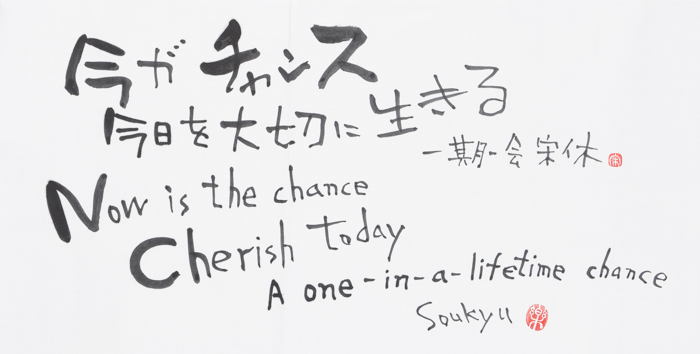 今がチャンス
今日を大切に生きる
一期一会 宗休
Now is the chance
Cherish today
A one-in-a-lifetime chance
Soukyu